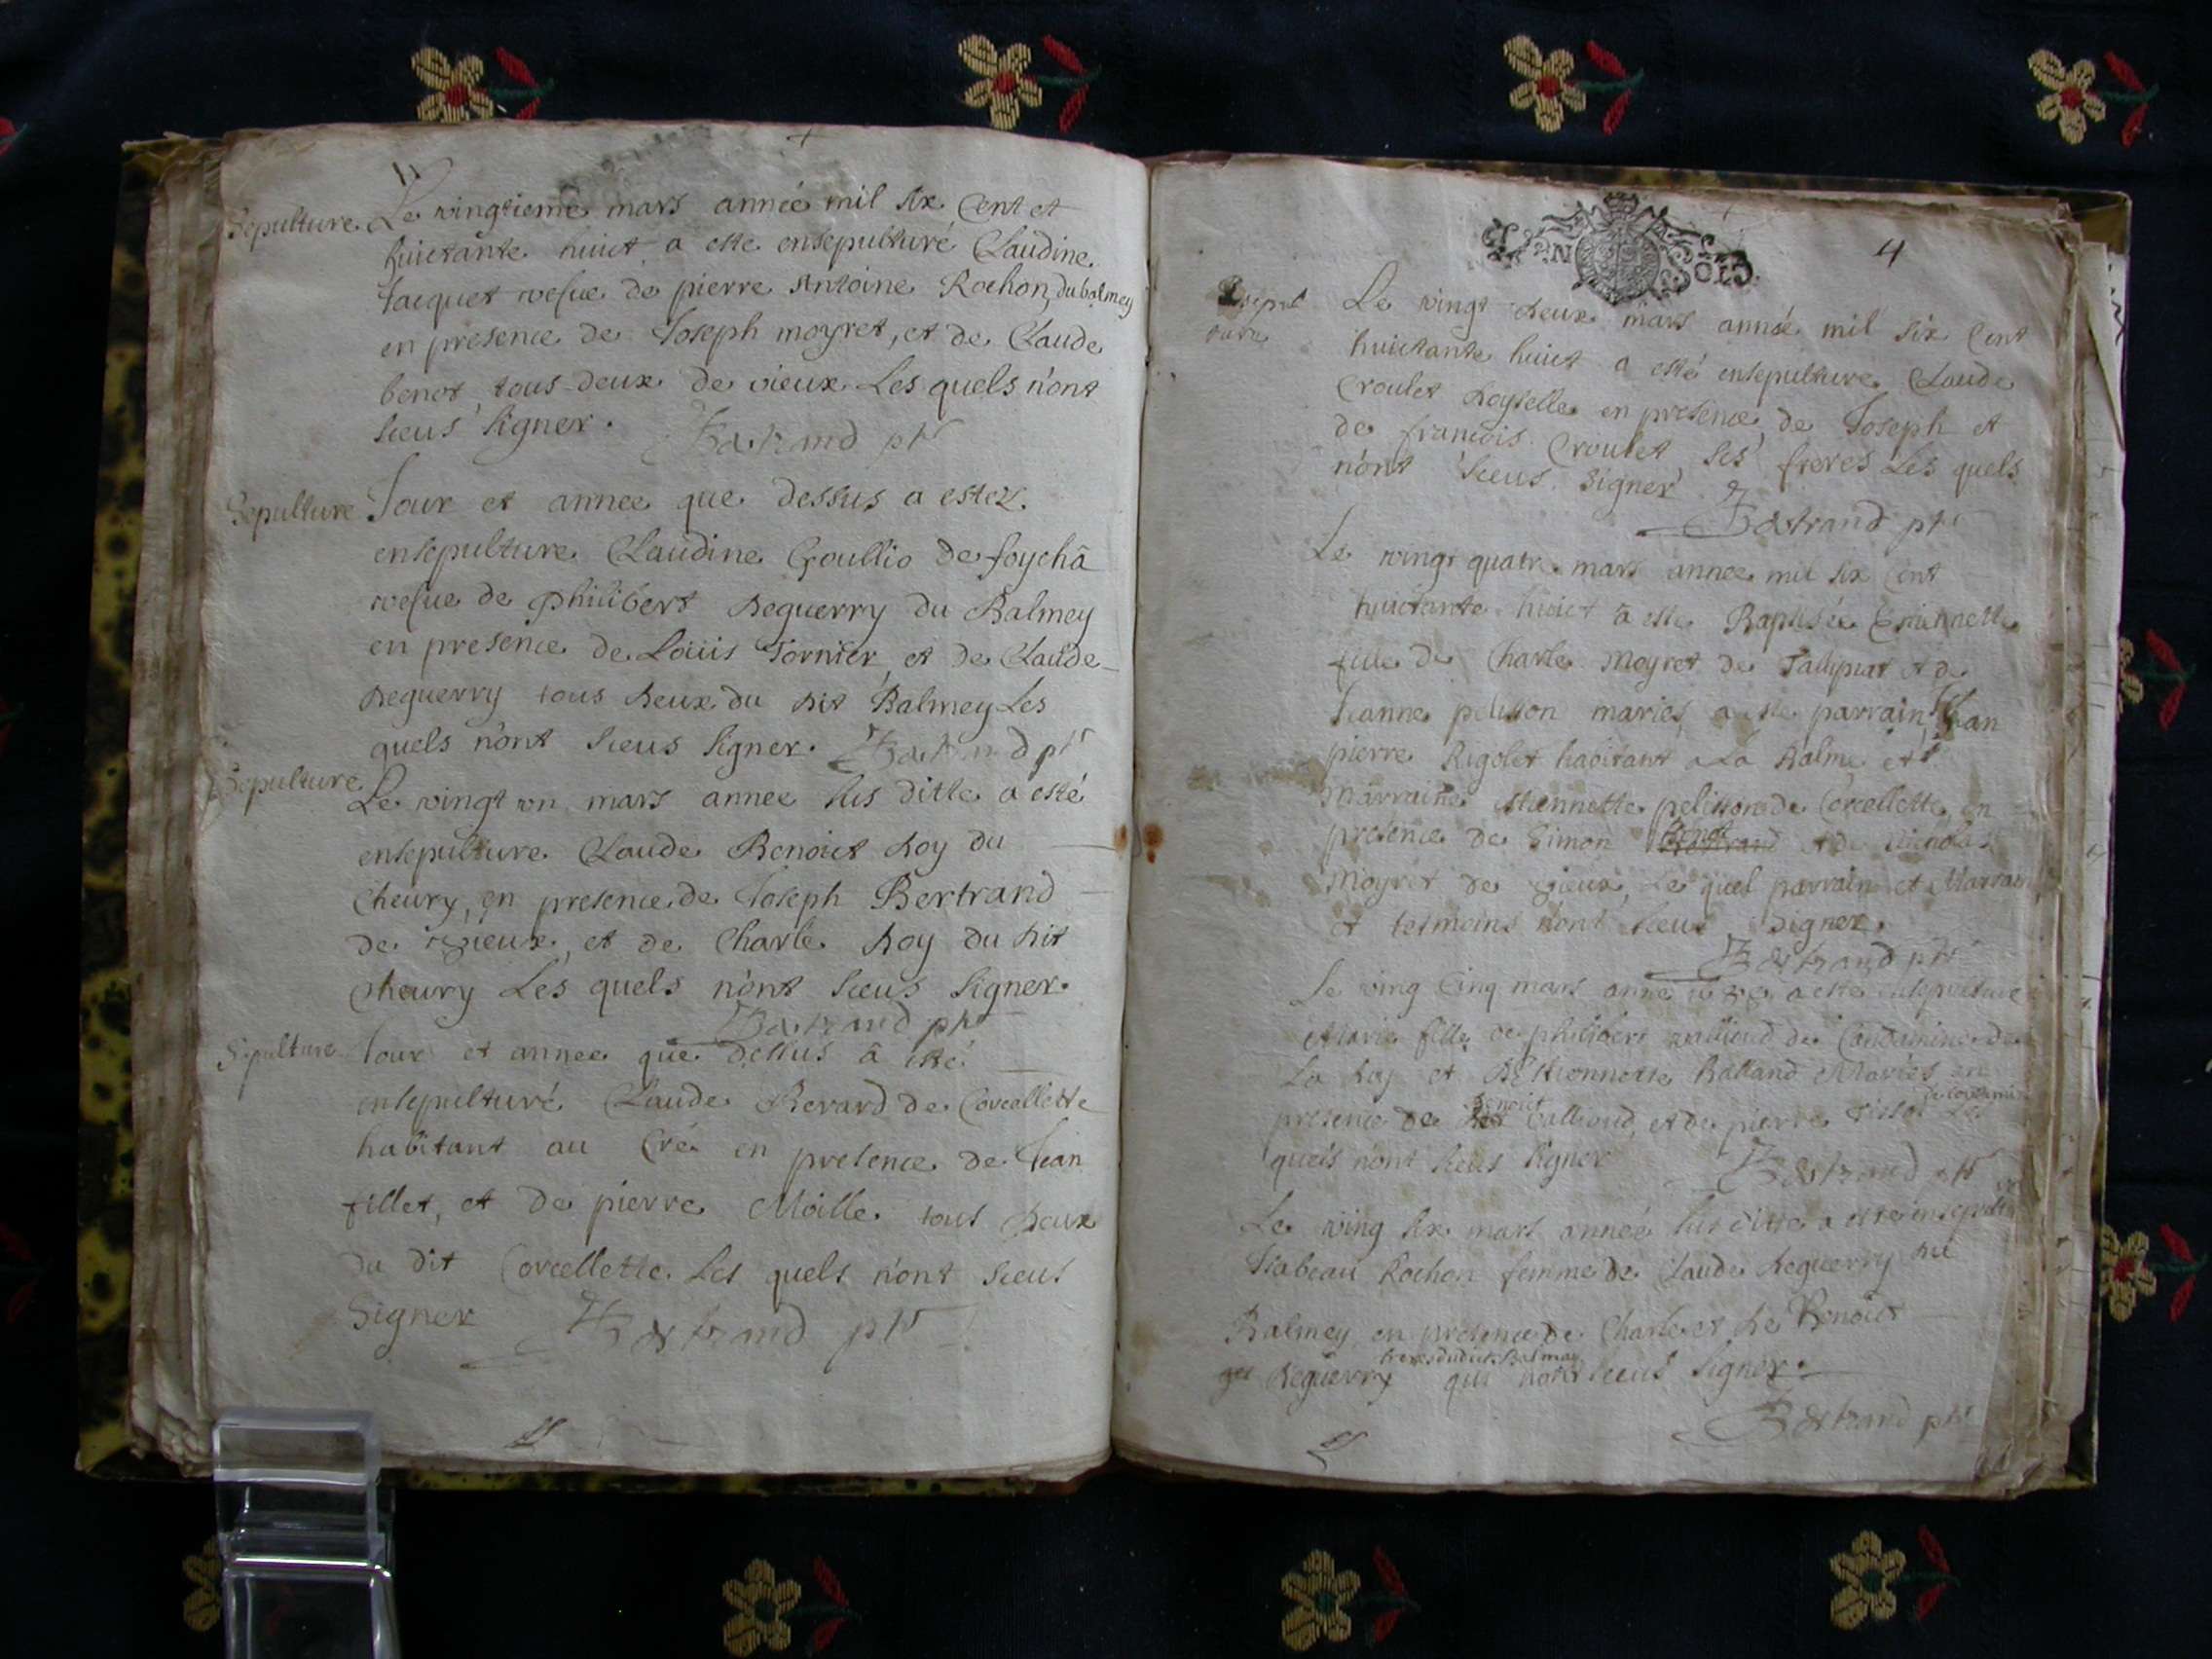 Sepulture Le vingtieme mars année mil six Cent et
huictante huict a este ensepulturé Claudine
Jacquet vesue de pierre Antoine Rochon du balmey
en presence de Joseph moyret, et de Claude
benot tous deux de vieux Les quels n'ont
sceus signer. Bertrand ptre
Sepulture Jour et annee que dessus a estez
ensepulture Claudine Goullio de soychâ
vesue de philibert Deguerry du Balmey
en presence de Loüis Tornier et de Claude
Deguerry tous deux du dit Balmey Les
quels n'ont sceus signer. Bertrand ptre
Sepulture Le vingt un mars annee sus ditte a esté
ensepulture Claude Benoict Roy du
Cheury, en presence de Joseph Bertrand
de vieux, et de Charle Roy du dit
Cheury Les quels n'ont sceus signer.
Bertrand ptre
Sepulture Jour et annee que dessus â esté
ensepulturé Claude Berard de Corcellette
habitant au Cré en presence de Jean
fillet, et de pierre Moille tous deux
du dit Corcellette. Les quels n'ont sceus
signer Bertrand ptre
4
Sepulture Le vingt deux mars année mil six Cent
huictante huict a esté ensepulture Claude
Croulet en presence de Joseph et
de francois Croulet ses freres Les quels
n'ont sceus signer
Bertrand ptre
Le vingt quatre mars annee mil six Cent
huictante huict a este Baptisée
fille de Charle Moyret de et de
Jeanne pelisson mariés, a este parrain Jean
pierre Rigolet habitant a La Balme et
Marraine estiennette pelisson de Corcellette en
presence de Simon Benot et de Nicholas
Moyret de vieux, Le quel parrain et Marraine
et tesmoins n'ont sceus signer.
Bertrand ptre
Le ving Cinq mars a este ensepulture
Marie fille de philibert de Condamine de
La et Estiennette Balland Mariés en
presence de Benoict et de pierre Tissot Les
quels n'ont sceus signer Bertrand ptre
Le ving six mars année sus ditte a esté ensepulture
Isabeau Rochon femme de Claude Deguerry du
Balmey en presence de Charle et de Benoict
Deguerry freres du dict Balmay qui n'ont sceus signer.
Bertrand ptre